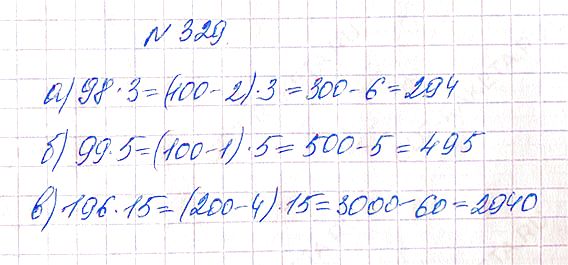 N 329.
а) 98·3=(100-2)·3=300-6=294
б) 99·5=(100-1)·5=500-5=495
в) 196·15=(200-4)·15=3000-60=2940